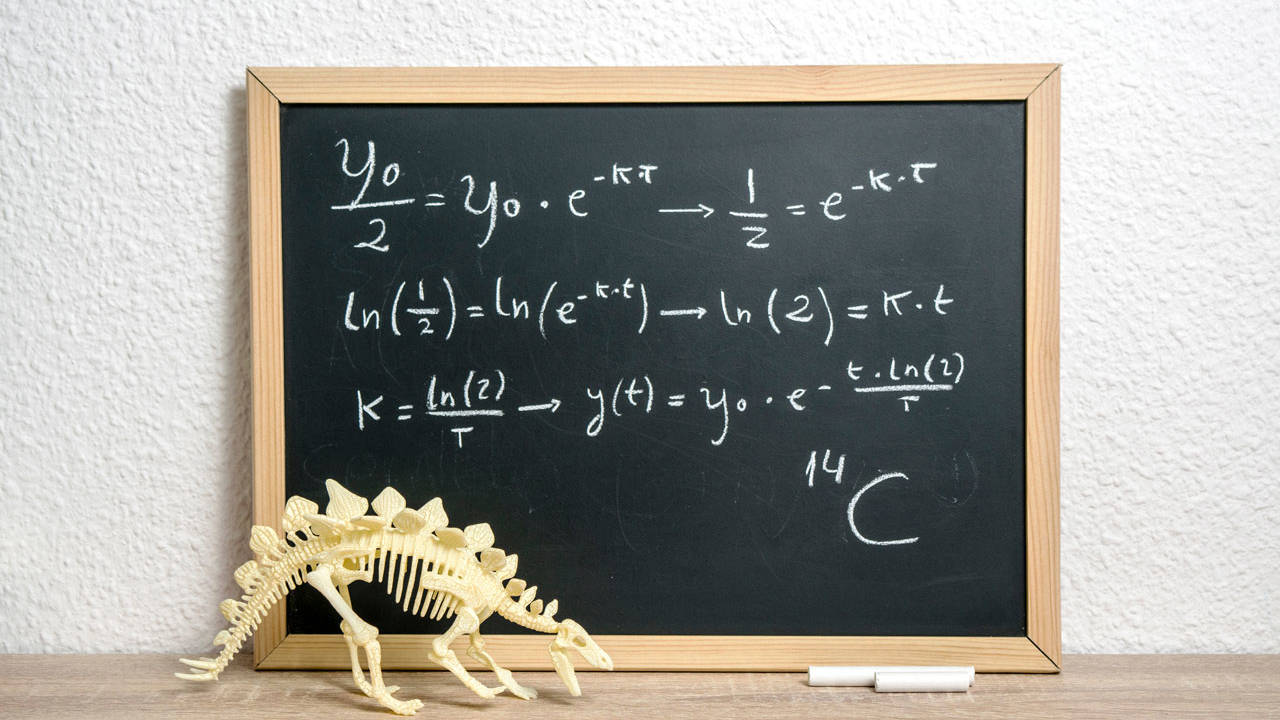 y₀/2 = y₀ · e^(-k·τ) → 1/2 = e^(-k·τ)
ln(1/2) = ln(e^(-k·t)) → ln(2) = k·t
k = ln(2)/τ → y(t) = y₀ · e^(- t·ln(2)/τ)
¹⁴C